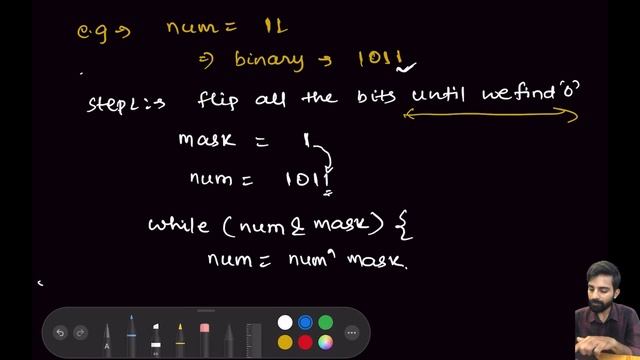 e.g → num = 11
⇒ binary → 1011
Step1:→ flip all the bits until we find '0'
mask = 1
num = 1011
while (num & mask) {
num = num ^ mask.